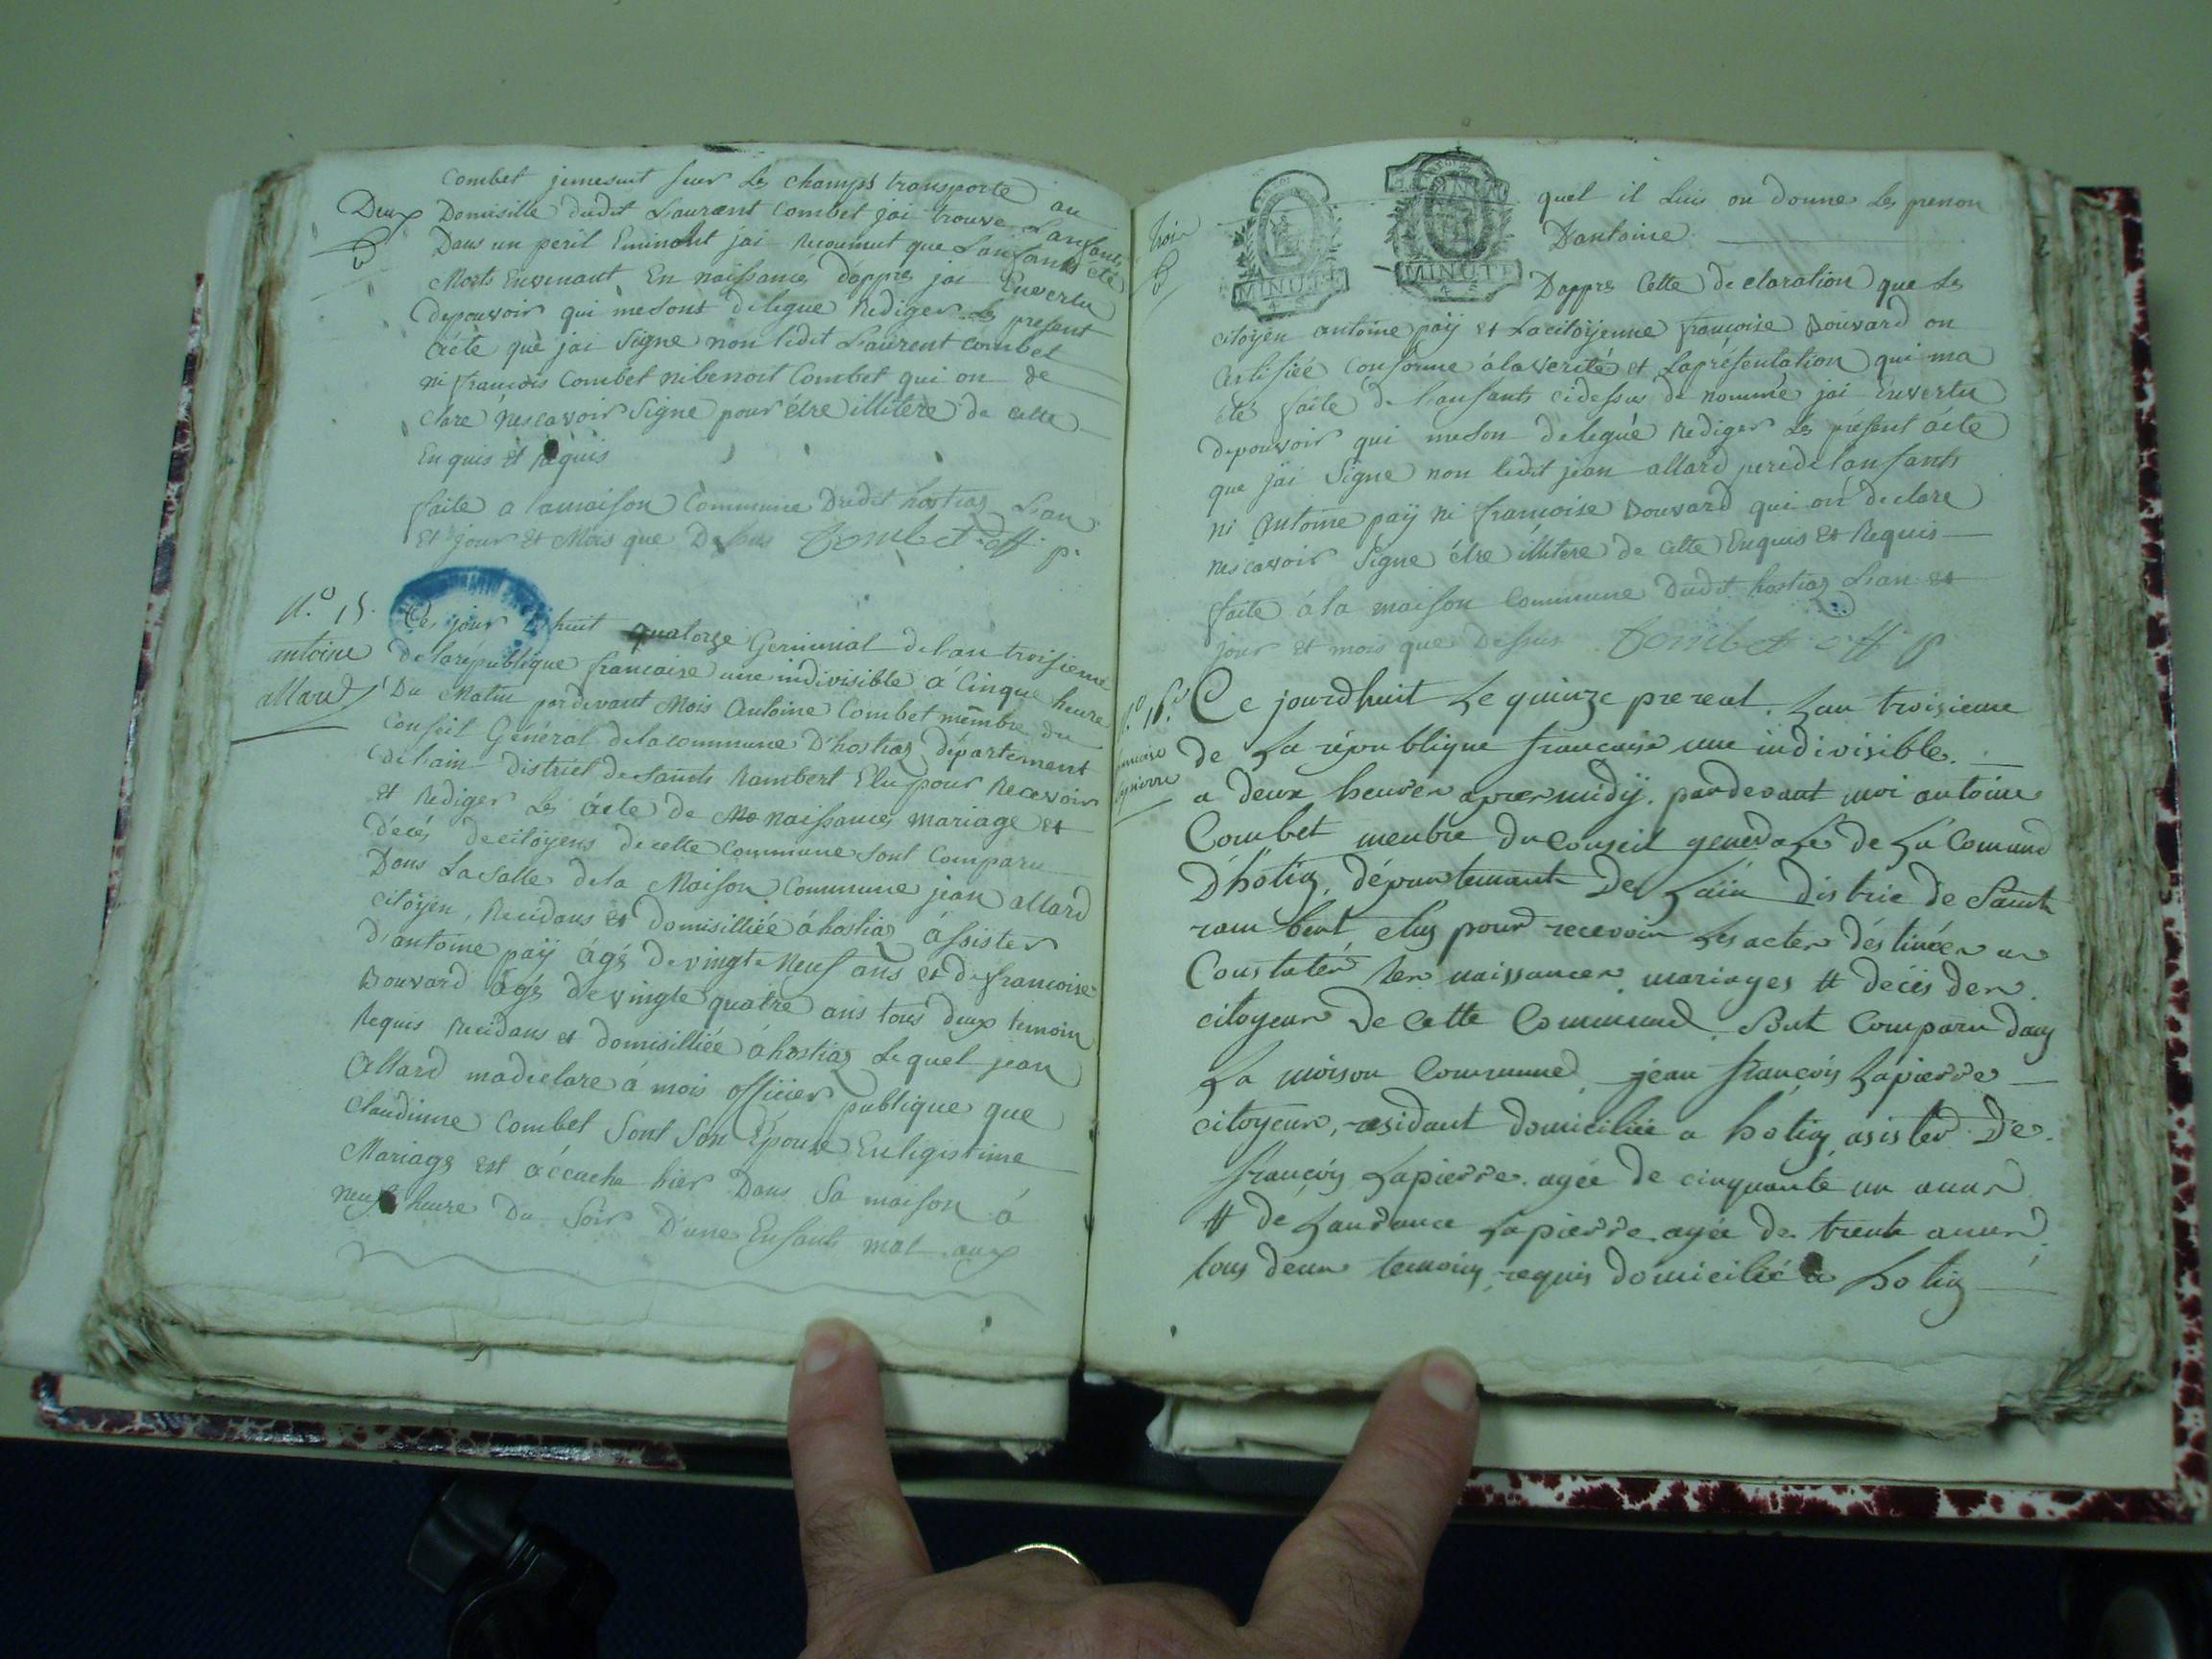 Combet jemesuit sur les champs transporte au
Deux
Domisille dudit Laurent Combet jai trouve Lanfants
Dans un peril Eminant jai Reconnut que Lanfants été
Morts Envenant En naissance dappres jai Envertu
depouvoir qui mesont delegue Rediger Le present
ácte que jai Signe non ledit Laurent Combet
ni francois Combet ni benoit Combet qui on de
clare nescavoir Signe pour être illitere de cette
Enquis et Requis
faite a lamaison Commune Dudit hostiaz Lan
Et jour Et Mois que Dessus Combet off. p.
N.º 15.
antoine
allard
Ce jour huit quatorze Germinal delan troisieme
delarépublique francaise une indivisible á Cinque heure
Du Matin pardevant Mois Antoine Combet membre du
Conseil Général delacommune D'hostiaz département
delain district desaints Rambert Elu pour Recevoir
et Rediger Les ácte de naissances mariage et
décés decitoyens decette Commune sont Comparu
Dans La salle dela Maison Commune jean allard
Citoyen, Recidans et domisilliée á hostiaz ássister
d'antoine paÿ ágé devingte Neuf ans et de francoise
Bouvard ágé devingte quatre ans tous deux temoin
Requis Recidans et domisilliée á hostiaz Lequel jean
Allard madeclare á mois officier publique que
Claudinne Combet Sont Son Epouse Enligistime
Mariage est áccuche hier Dans Sa maison á
neuf heure Du Soir D'une Enfants mal aux
trois
quel il Luis on donne Les prenon
D'antoine
MINUTE
MINUTE
Dappres Cette declaration que Les
citoÿen antoine paÿ et Lacitoÿenne francoise Bouvard on
Certifiée Conforme á la verité et Laprésentation qui ma
été faite de lanfants cidessus de nommé jai Envertu
depouvoir qui meson delegué Rediger Les présent ácte
que jai Signe non ledit jean allard peredelanfants
ni Antoine paÿ ni francoise Bouvard qui on déclare
nescavoir Signe étre illitere de Cette Enquis Et Requis
faite á la maison Commune dudit hostiaz Lan et
jour et mois que Dessus Combet off p
N.º 16.
Lapierre
Ce jourdhuit Le quinze prereal. Lan troisieme
de La république francaise une indivisible.
a deux heures apresmidÿ. pardevant moi antoine
Combet membre du Conseil generale de La Comune
D'hotiaz, départemante De Lain distric de Saint
rambert elus pour recevoir Les actes déstinées a
Constater les naissances mariages et décés des
citoyens De Cette Commune Sont Comparu dans
La maison Commune jean françois Lapierre
citoyens, residant domiciliée a hotiaz asister De.
françois Lapierre agée de cinquante un annes
et de Laurance Lapierre agée de trente annes
tous deux temoins requis domicilié a hotiaz